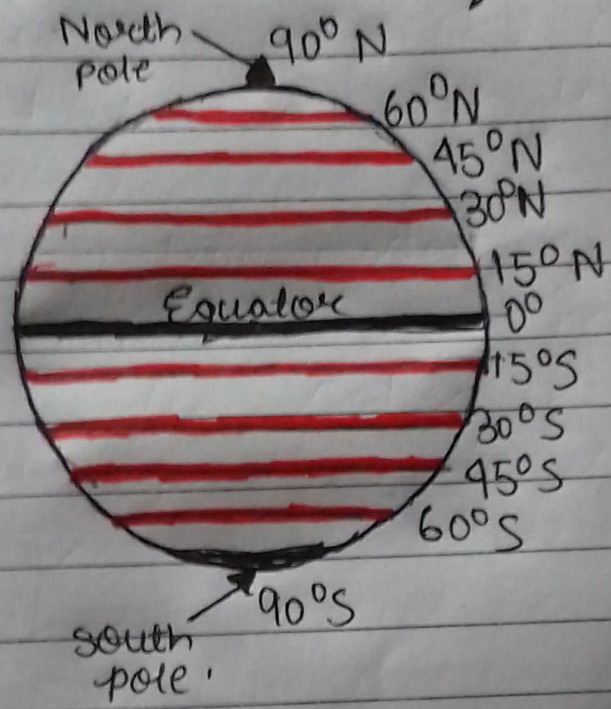 North
pole
90° N
60°N
45°N
30°N
15°N
Equator
0°
15°S
30°S
45°S
60°S
90°S
south
pole.